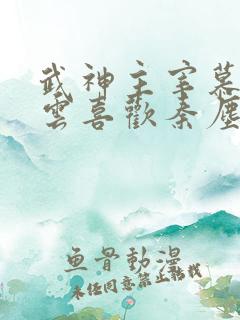 武神主宰慕
雲喜歡秦塵
魚骨動漫
未经同意禁止转载